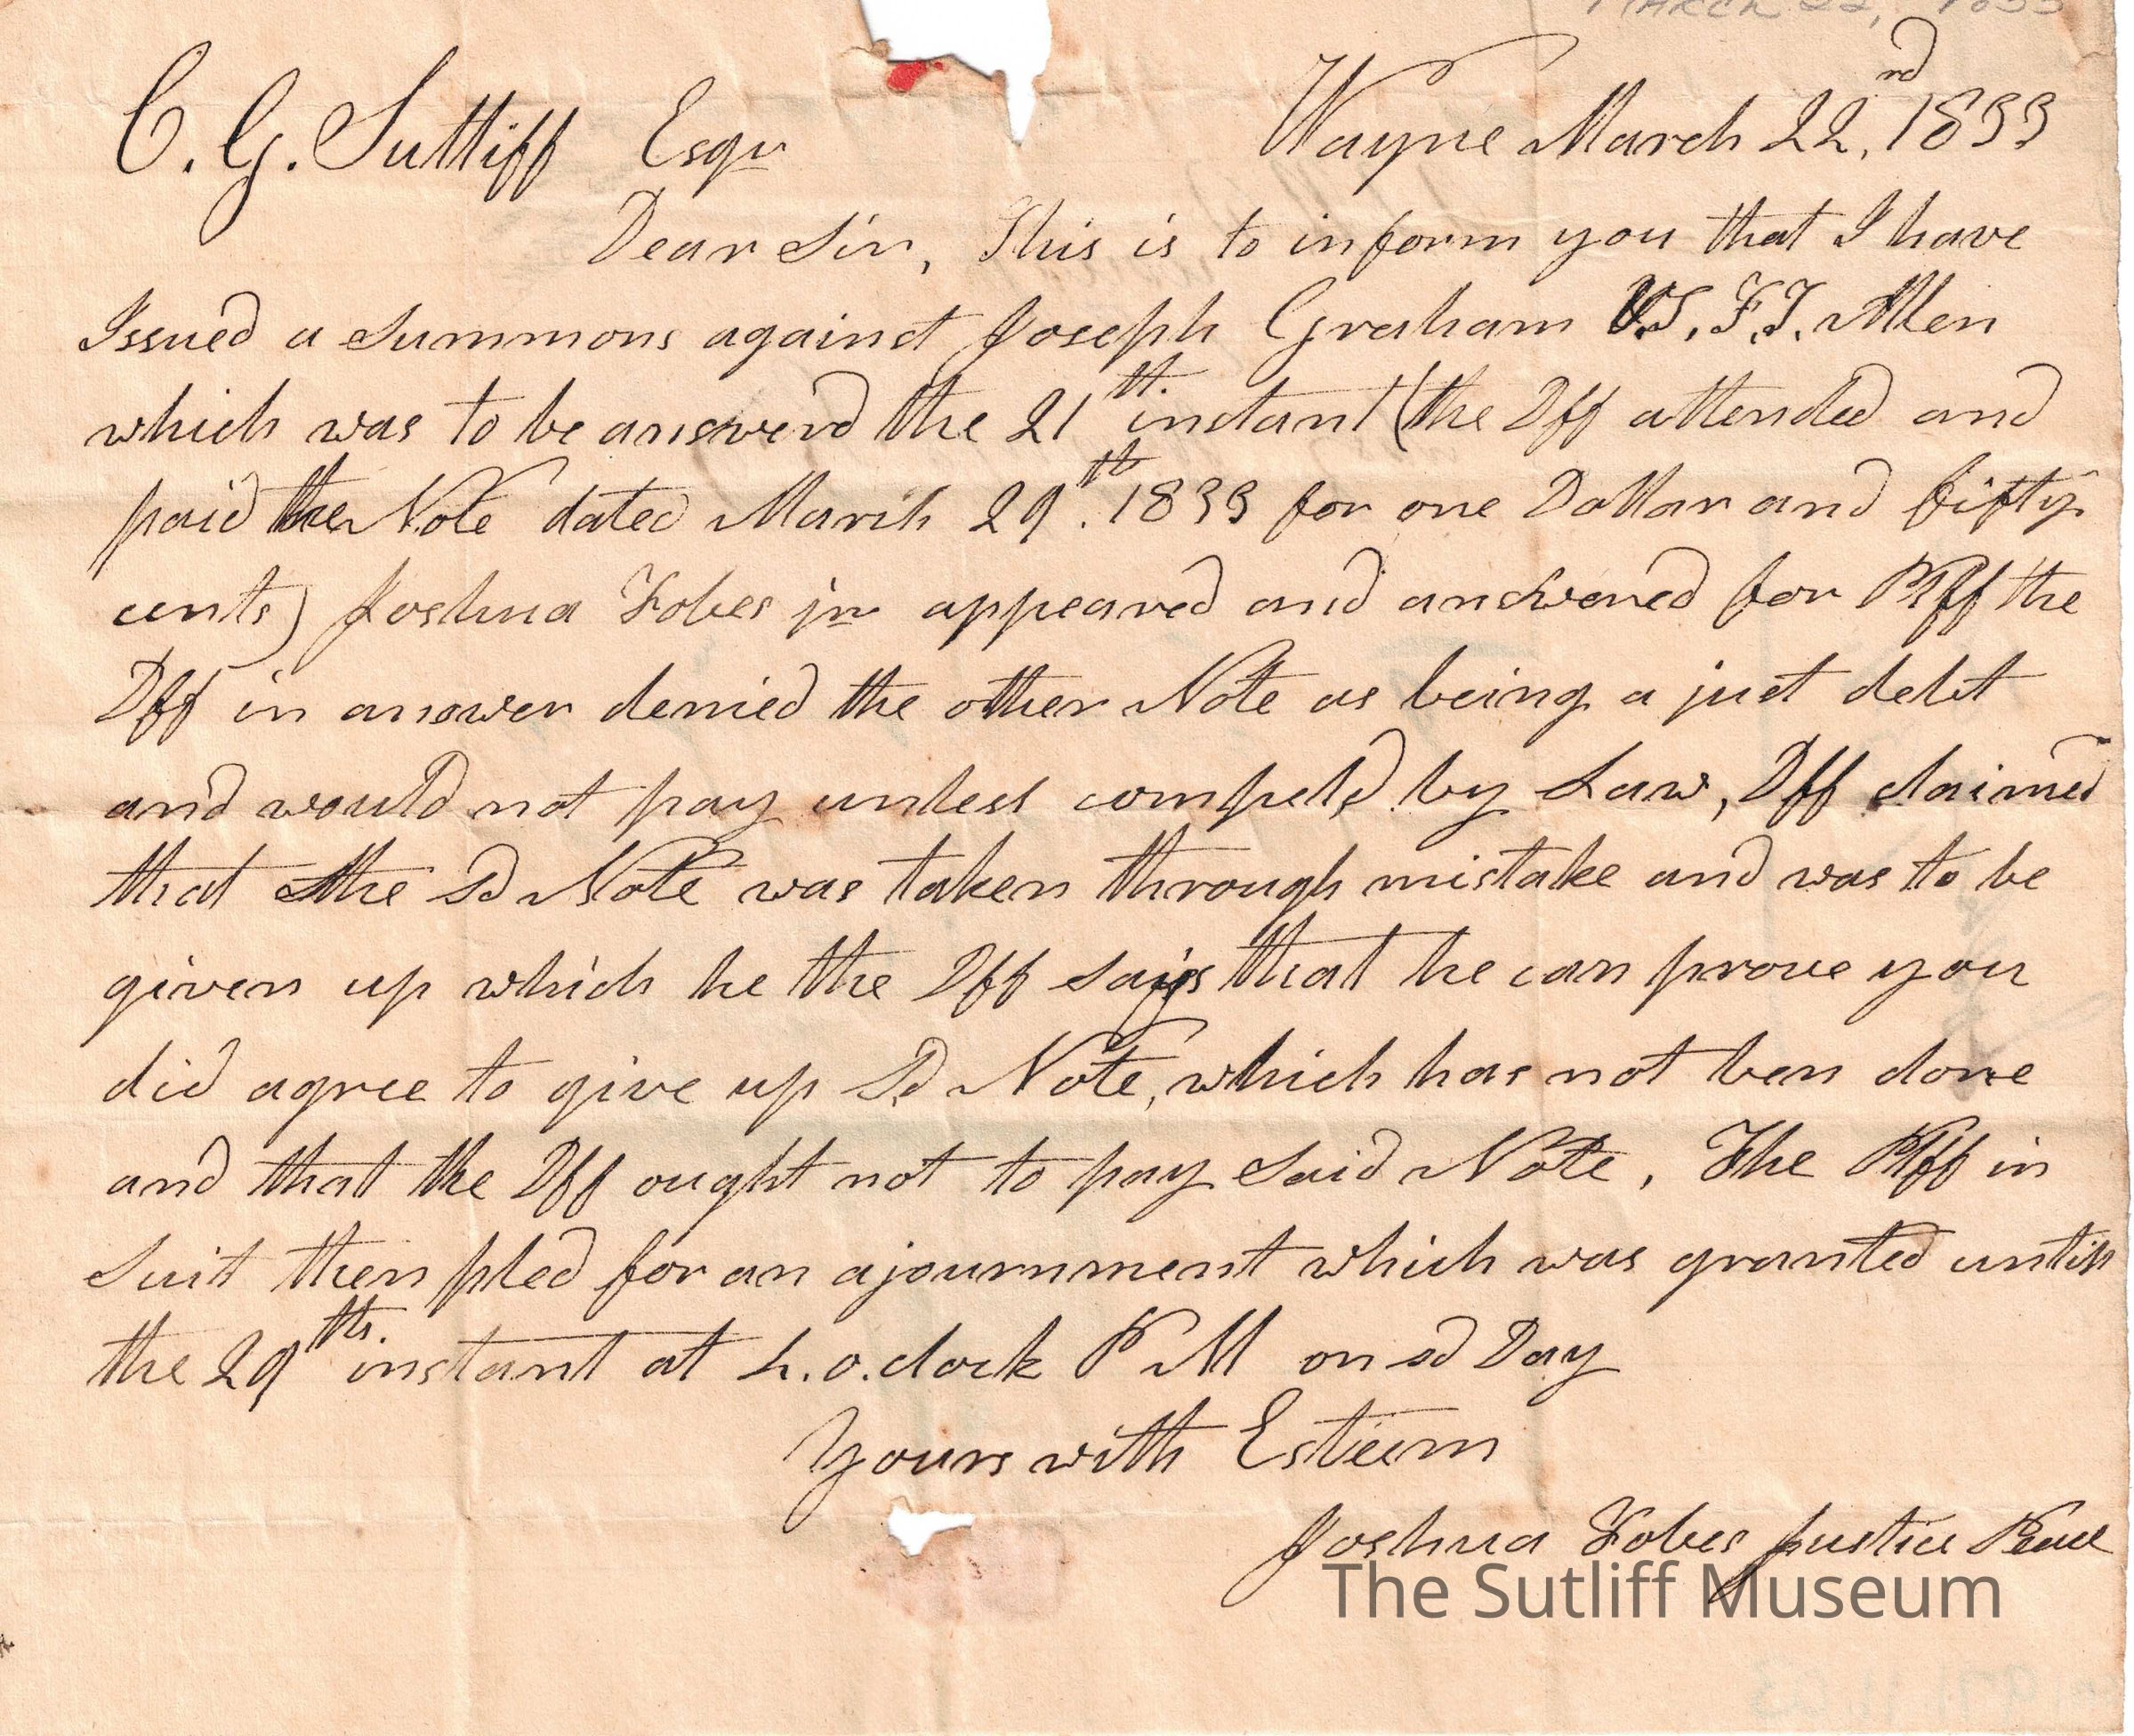 MARCH 22, 1833
C. G. Sutliff Esqr Wayne March 22,rd 1833
Dear Sir, This is to inform you that I have
Issued a Summons against Joseph Graham VS. F.T. Allen
which was to be answerd the 21th. instant (the Dff attended and
paid the Note dated March 29th. 1833 for one Dollar and fifty
cents) Joshua Fobes jnr appeared and answered for Pltff the
Dff in answer denied the other Note as being a just debt
and would not pay unless compeld by Law, Dff claimed
that the sd Note was taken through mistake and was to be
given up which he the Dff says that he can prove you
did agree to give up Sd Note, which has not ben done
and that the Dff ought not to pay Said Note, The Pltff in
Suit then pled for an ajournment which was granted untill
the 29th. instant at o.clock P M on sd Day
Yours with Esteem
Joshua Fobes Justice Peace
The Sutliff Museum